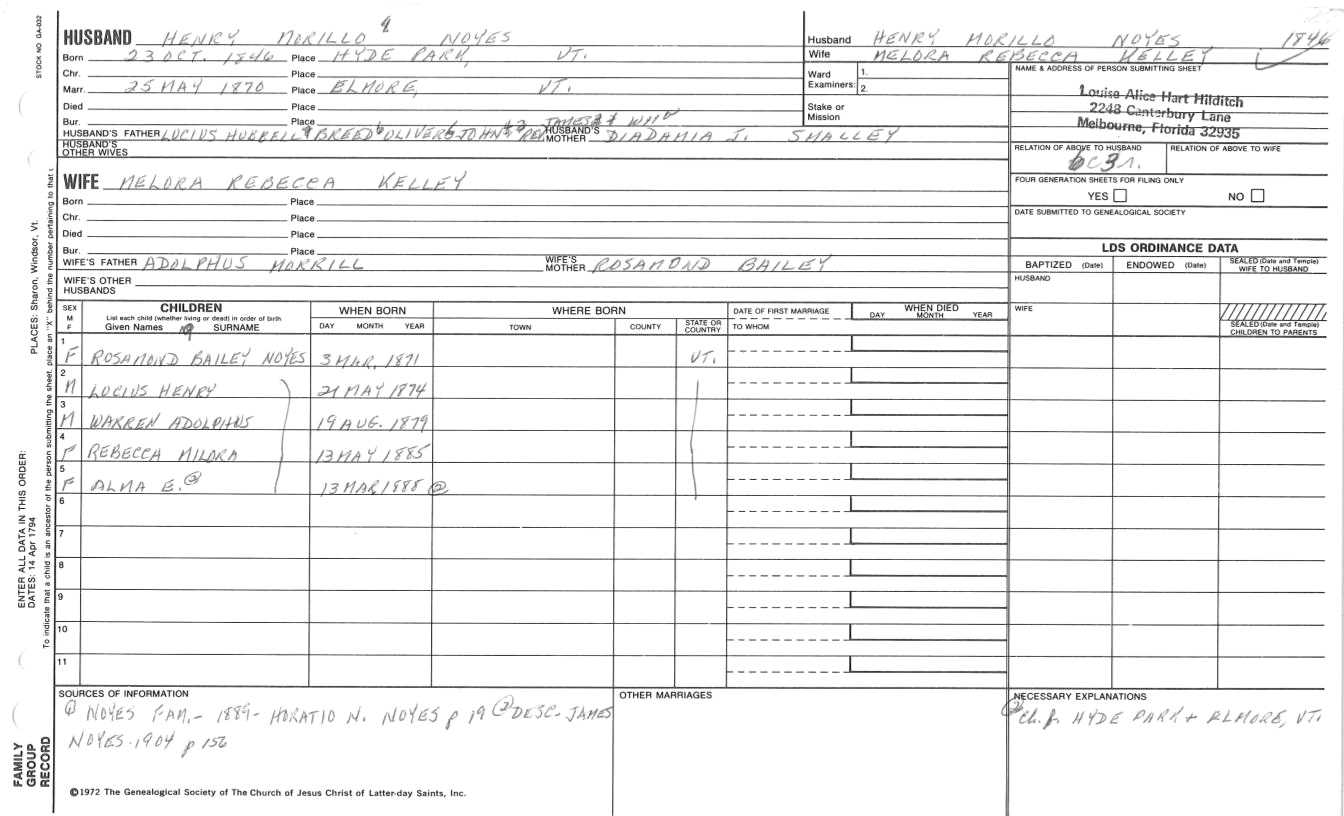 STOCK NO GA-032
HUSBAND HENRY MORILLO 9 NOYES
Born 23 OCT. 1846 Place HYDE PARK, VT.
Chr. Place
Marr. 25 MAY 1870 Place ELMORE, VT.
Died Place
Bur. Place
HUSBAND'S FATHER LUCIUS BREED OLIVER JOHN REV JAMES WM HUSBAND'S MOTHER DIADAMIA J. SMALLEY
HUSBAND'S OTHER WIVES
Husband HENRY MORILLO NOYES 1846
Wife MELORA REBECCA KELLEY
Ward Examiners: 1. 2.
Stake or Mission
NAME & ADDRESS OF PERSON SUBMITTING SHEET
Louise Alice Hart Hilditch
2248 Canterbury Lane
Melbourne, Florida 32935
RELATION OF ABOVE TO HUSBAND RELATION OF ABOVE TO WIFE
6C3r.
FOUR GENERATION SHEETS FOR FILING ONLY
YES NO
DATE SUBMITTED TO GENEALOGICAL SOCIETY
WIFE MELORA REBECCA KELLEY
Born Place
Chr. Place
Died Place
Bur. Place
WIFE'S FATHER ADOLPHUS MORRILL WIFE'S MOTHER ROSAMOND BAILEY
WIFE'S OTHER HUSBANDS
LDS ORDINANCE DATA
BAPTIZED (Date) ENDOWED (Date) SEALED (Date and Temple) WIFE TO HUSBAND
HUSBAND
WIFE
SEALED (Date and Temple) CHILDREN TO PARENTS
SEX M F
CHILDREN
List each child (whether living or dead) in order of birth
Given Names SURNAME
WHEN BORN DAY MONTH YEAR
WHERE BORN TOWN COUNTY STATE OR COUNTRY
DATE OF FIRST MARRIAGE TO WHOM
WHEN DIED DAY MONTH YEAR
1 F ROSAMOND BAILEY NOYES 3 MAR, 1871 VT.
2 M LUCIUS HENRY 21 MAY 1874
3 M WARREN ADOLPHUS 19 AUG. 1879
4 F REBECCA MILORA 13 MAY 1885
5 F ALMA E. ② 13 MAR 1888 ②
6
7
8
9
10
11
SOURCES OF INFORMATION
① NOYES FAM.- 1889- HORATIO N. NOYES p 19 ② DESC-JAMES
NOYES-1904 p 156
OTHER MARRIAGES
NECESSARY EXPLANATIONS
Ch. b. HYDE PARK + ELMORE, VT.
©1972 The Genealogical Society of The Church of Jesus Christ of Latter-day Saints, Inc.
FAMILY GROUP RECORD
ENTER ALL DATA IN THIS ORDER:
DATES: 14 Apr 1794
PLACES: Sharon, Windsor, Vt.
To indicate that a child is an ancestor of the person submitting the sheet, place an "X" behind the number pertaining to that